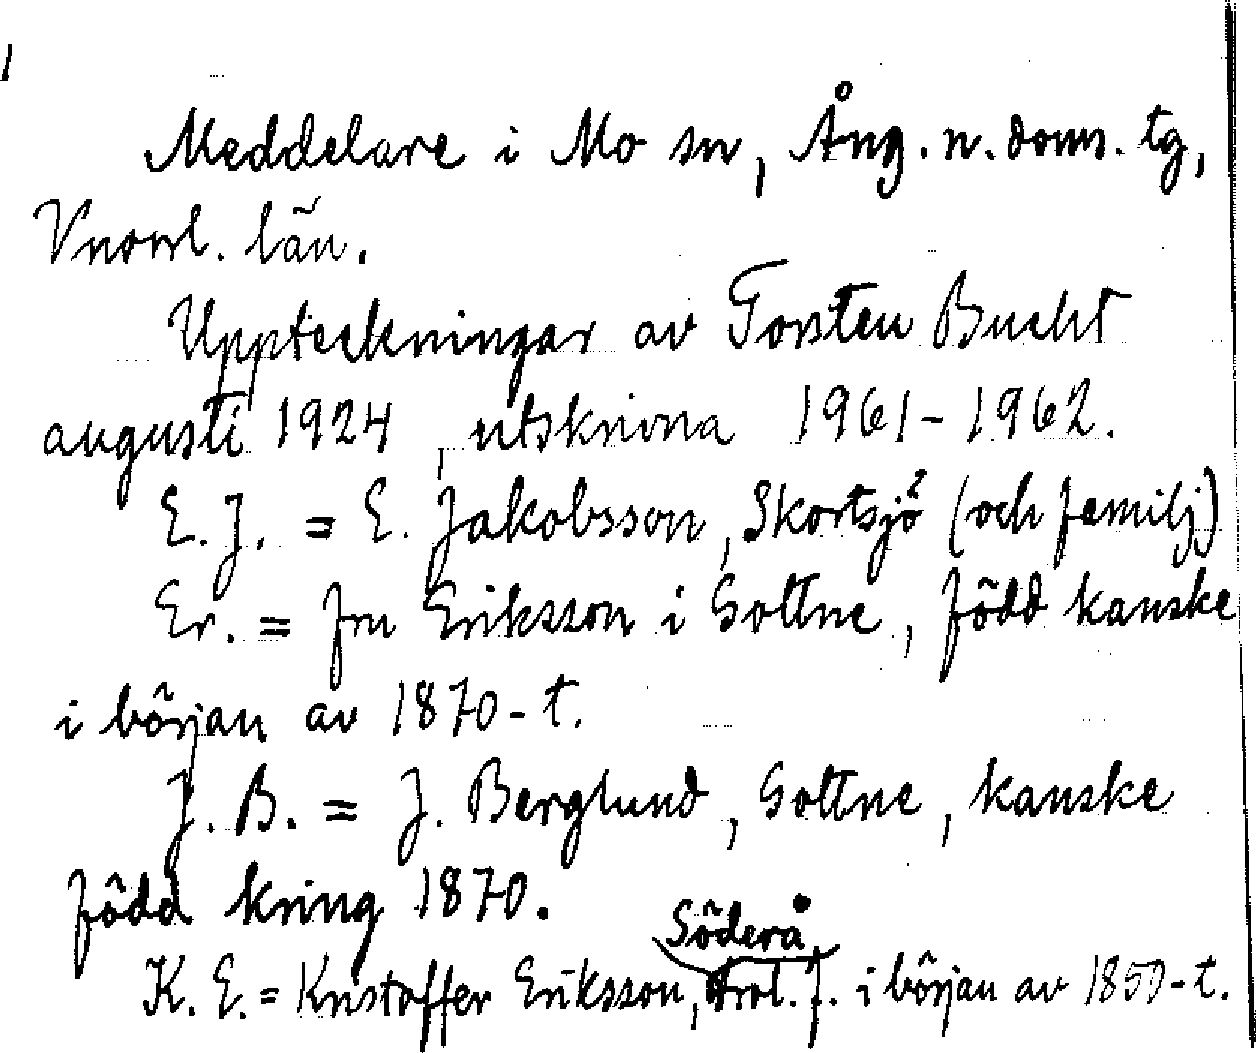 1
Meddelare i Mo sn, Ång. n. doms. tg,
Vnorrl. län.
Uppteckningar av Torsten Bucht
augusti 1924, utskrivna 1961-1962.
E. J. = E. Jakobsson, Skortsjö (och familj)
Er. = fru Eriksson i Gottne, född kanske
i början av 1870-t.
J. B. = J. Berglund, Gottne, kanske
född kring 1870.
Söderå
K. E. = Kristoffer Eriksson, trol. f. i början av 1850-t.